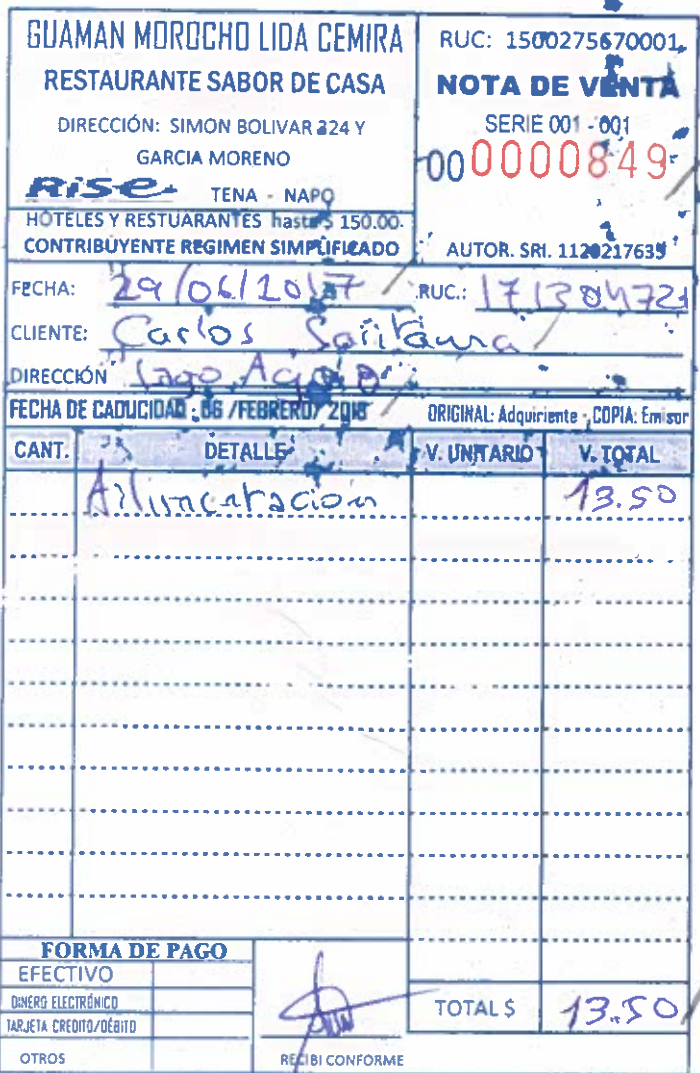 GUAMAN MOROCHO LIDA CEMIRA
RESTAURANTE SABOR DE CASA
DIRECCIÓN: SIMON BOLIVAR 224 Y
GARCIA MORENO
RISE TENA - NAPO
HOTELES Y RESTUARANTES hasta $ 150.00
CONTRIBUYENTE REGIMEN SIMPLIFICADO
RUC: 1500275670001
NOTA DE VENTA
SERIE 001 - 001
00 0000849
AUTOR. SRI. 1120217635
FECHA: 29/06/2017 RUC.: 171304721
CLIENTE: Carlos Santana
DIRECCIÓN Lago Agrio
FECHA DE CADUCIDAD : 06 /FEBRERO/ 2018 ORIGINAL: Adquiriente - COPIA: Emisor
CANT. DETALLE V. UNITARIO V. TOTAL
Alimentacion 13.50
FORMA DE PAGO
EFECTIVO
DINERO ELECTRÓNICO
TARJETA CREDITO/DÉBITO
OTROS
RECIBI CONFORME
TOTAL $ 13.50